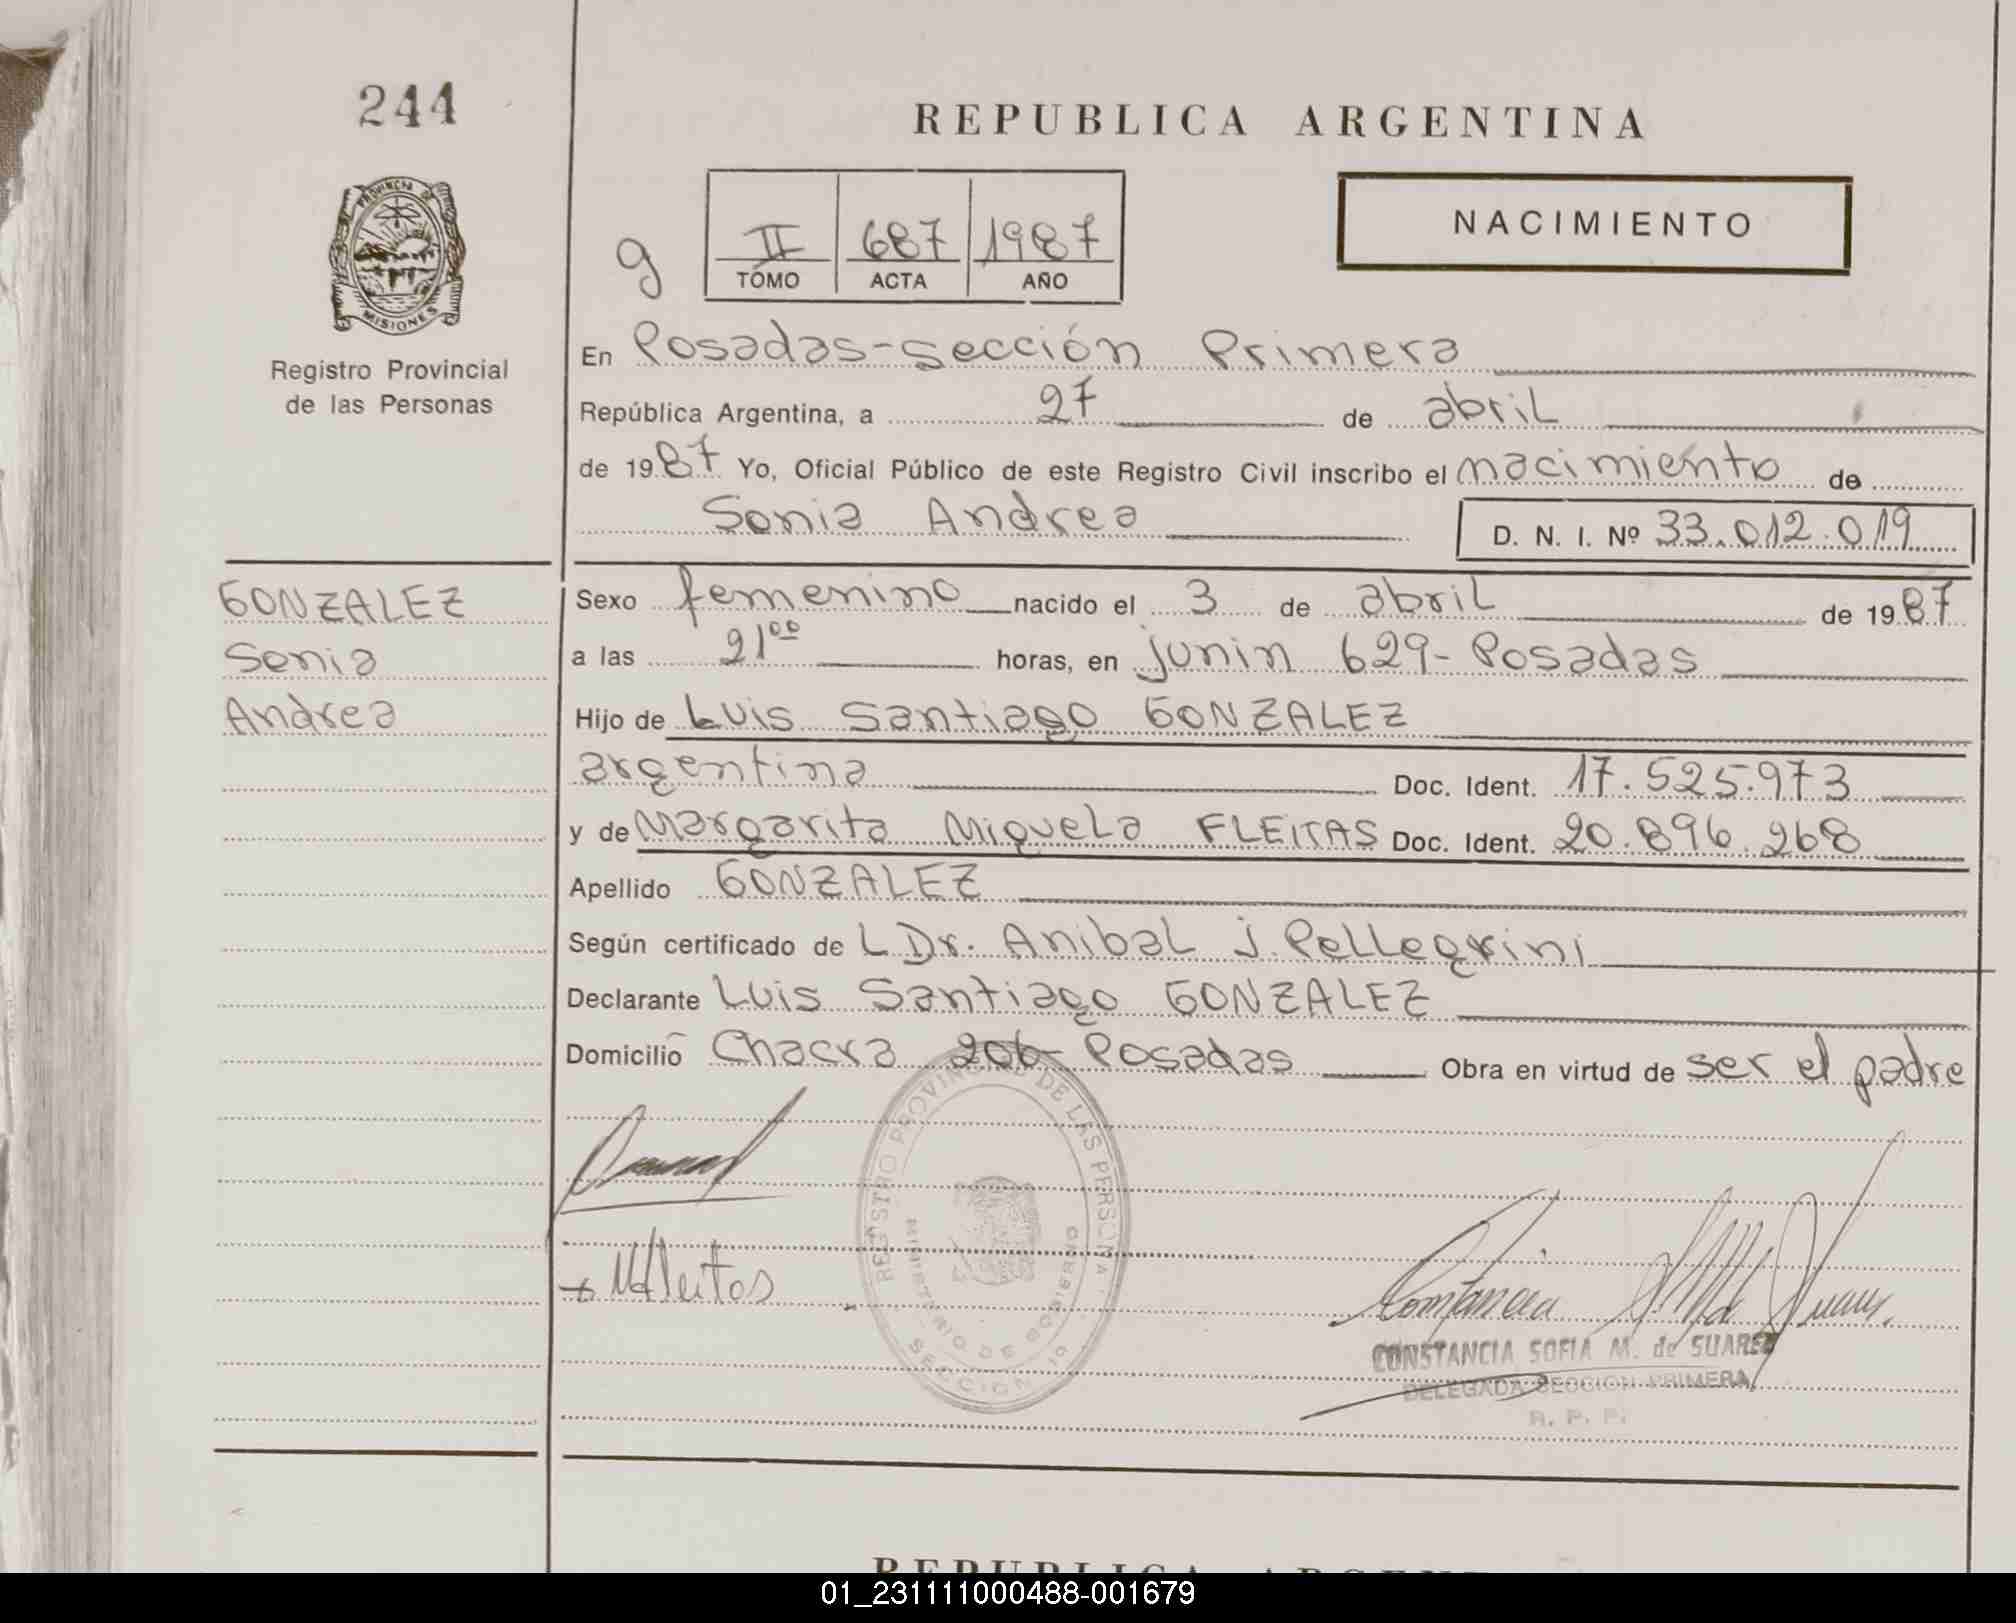 244
REPUBLICA ARGENTINA
PROVINCIA DE
MISIONES
Registro Provincial
de las Personas
g
II 687 1987
TOMO ACTA AÑO
NACIMIENTO
En Posadas-sección Primera
República Argentina, a 27 de abril
de 1987 Yo, Oficial Público de este Registro Civil inscribo el nacimiento de
Sonia Andrea
D. N. I. Nº 33.012.019
GONZALEZ
Sonia
Andrea
Sexo femenino nacido el 3 de abril de 1987
a las 21⁰⁰ horas, en junin 629- Posadas
Hijo de Luis Santiago GONZALEZ
argentina Doc. Ident. 17.525.973
y de Margarita Miquela FLEITAS Doc. Ident. 20.896.268
Apellido GONZALEZ
Según certificado de L Dr. Anibal j. Pellegrini
Declarante Luis Santiago GONZALEZ
Domicilio Chacra 206- Posadas Obra en virtud de ser el padre
REGISTRO PROVINCIAL DE LAS PERSONAS
MINISTERIO DE GOBIERNO
SECCION 1a
Constancia Suarez
CONSTANCIA SOFIA M. de SUAREZ
DELEGADA SECCION PRIMERA
R. P. P.
REPUBLICA ARGEN
01_231111000488-001679